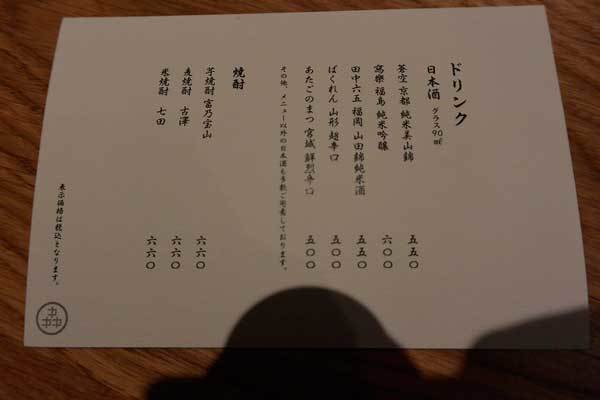 ドリンク
日本酒 グラス90ml
蒼空 京都 純米美山錦 五五〇
寫樂 福島 純米吟醸 六〇〇
田中六五 福岡 山田錦純米酒 五五〇
ばくれん 山形 超辛口 五〇〇
あたごのまつ 宮城 鮮烈辛口 五〇〇
その他、メニュー以外の日本酒も多数ご用意しております。
焼酎
芋焼酎 富乃宝山 六六〇
麦焼酎 古澤 六六〇
米焼酎 七田 六六〇
表示価格は税込となります。